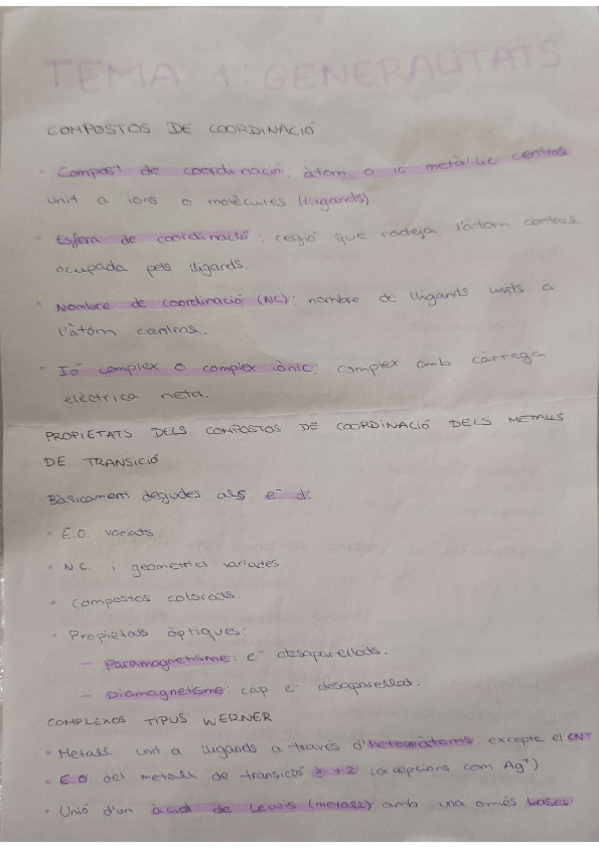 TEMA 1: GENERALITATS
COMPOSTOS DE COORDINACIÓ
• Compost de coordinació: àtom o ió metàl·lic central
unit a ions o molècules (lligands).
• Esfera de coordinació: regió que rodeja l'àtom central
ocupada pels lligands.
• Nombre de coordinació (NC): nombre de lligands units a
l'àtom central.
• Ió complex o complex iònic: complex amb càrrega
elèctrica neta.
PROPIETATS DELS COMPOSTOS DE COORDINACIÓ DELS METALLS
DE TRANSICIÓ
Bàsicament degudes als e⁻ d:
• E.O. variats.
• N.C. i geometries variades.
• Compostos colorats.
• Propietats òptiques:
– Paramagnetisme: e⁻ desaparellats.
– Diamagnetisme: cap e⁻ desaparellat.
COMPLEXOS TIPUS WERNER
• Metall unit a lligands a través d'heteroàtoms, excepte el CN⁻
• E.O. del metall de transició ≥ +2 (excepcions com Ag⁺)
• Unió d'un àcid de Lewis (metall) amb una o més bases